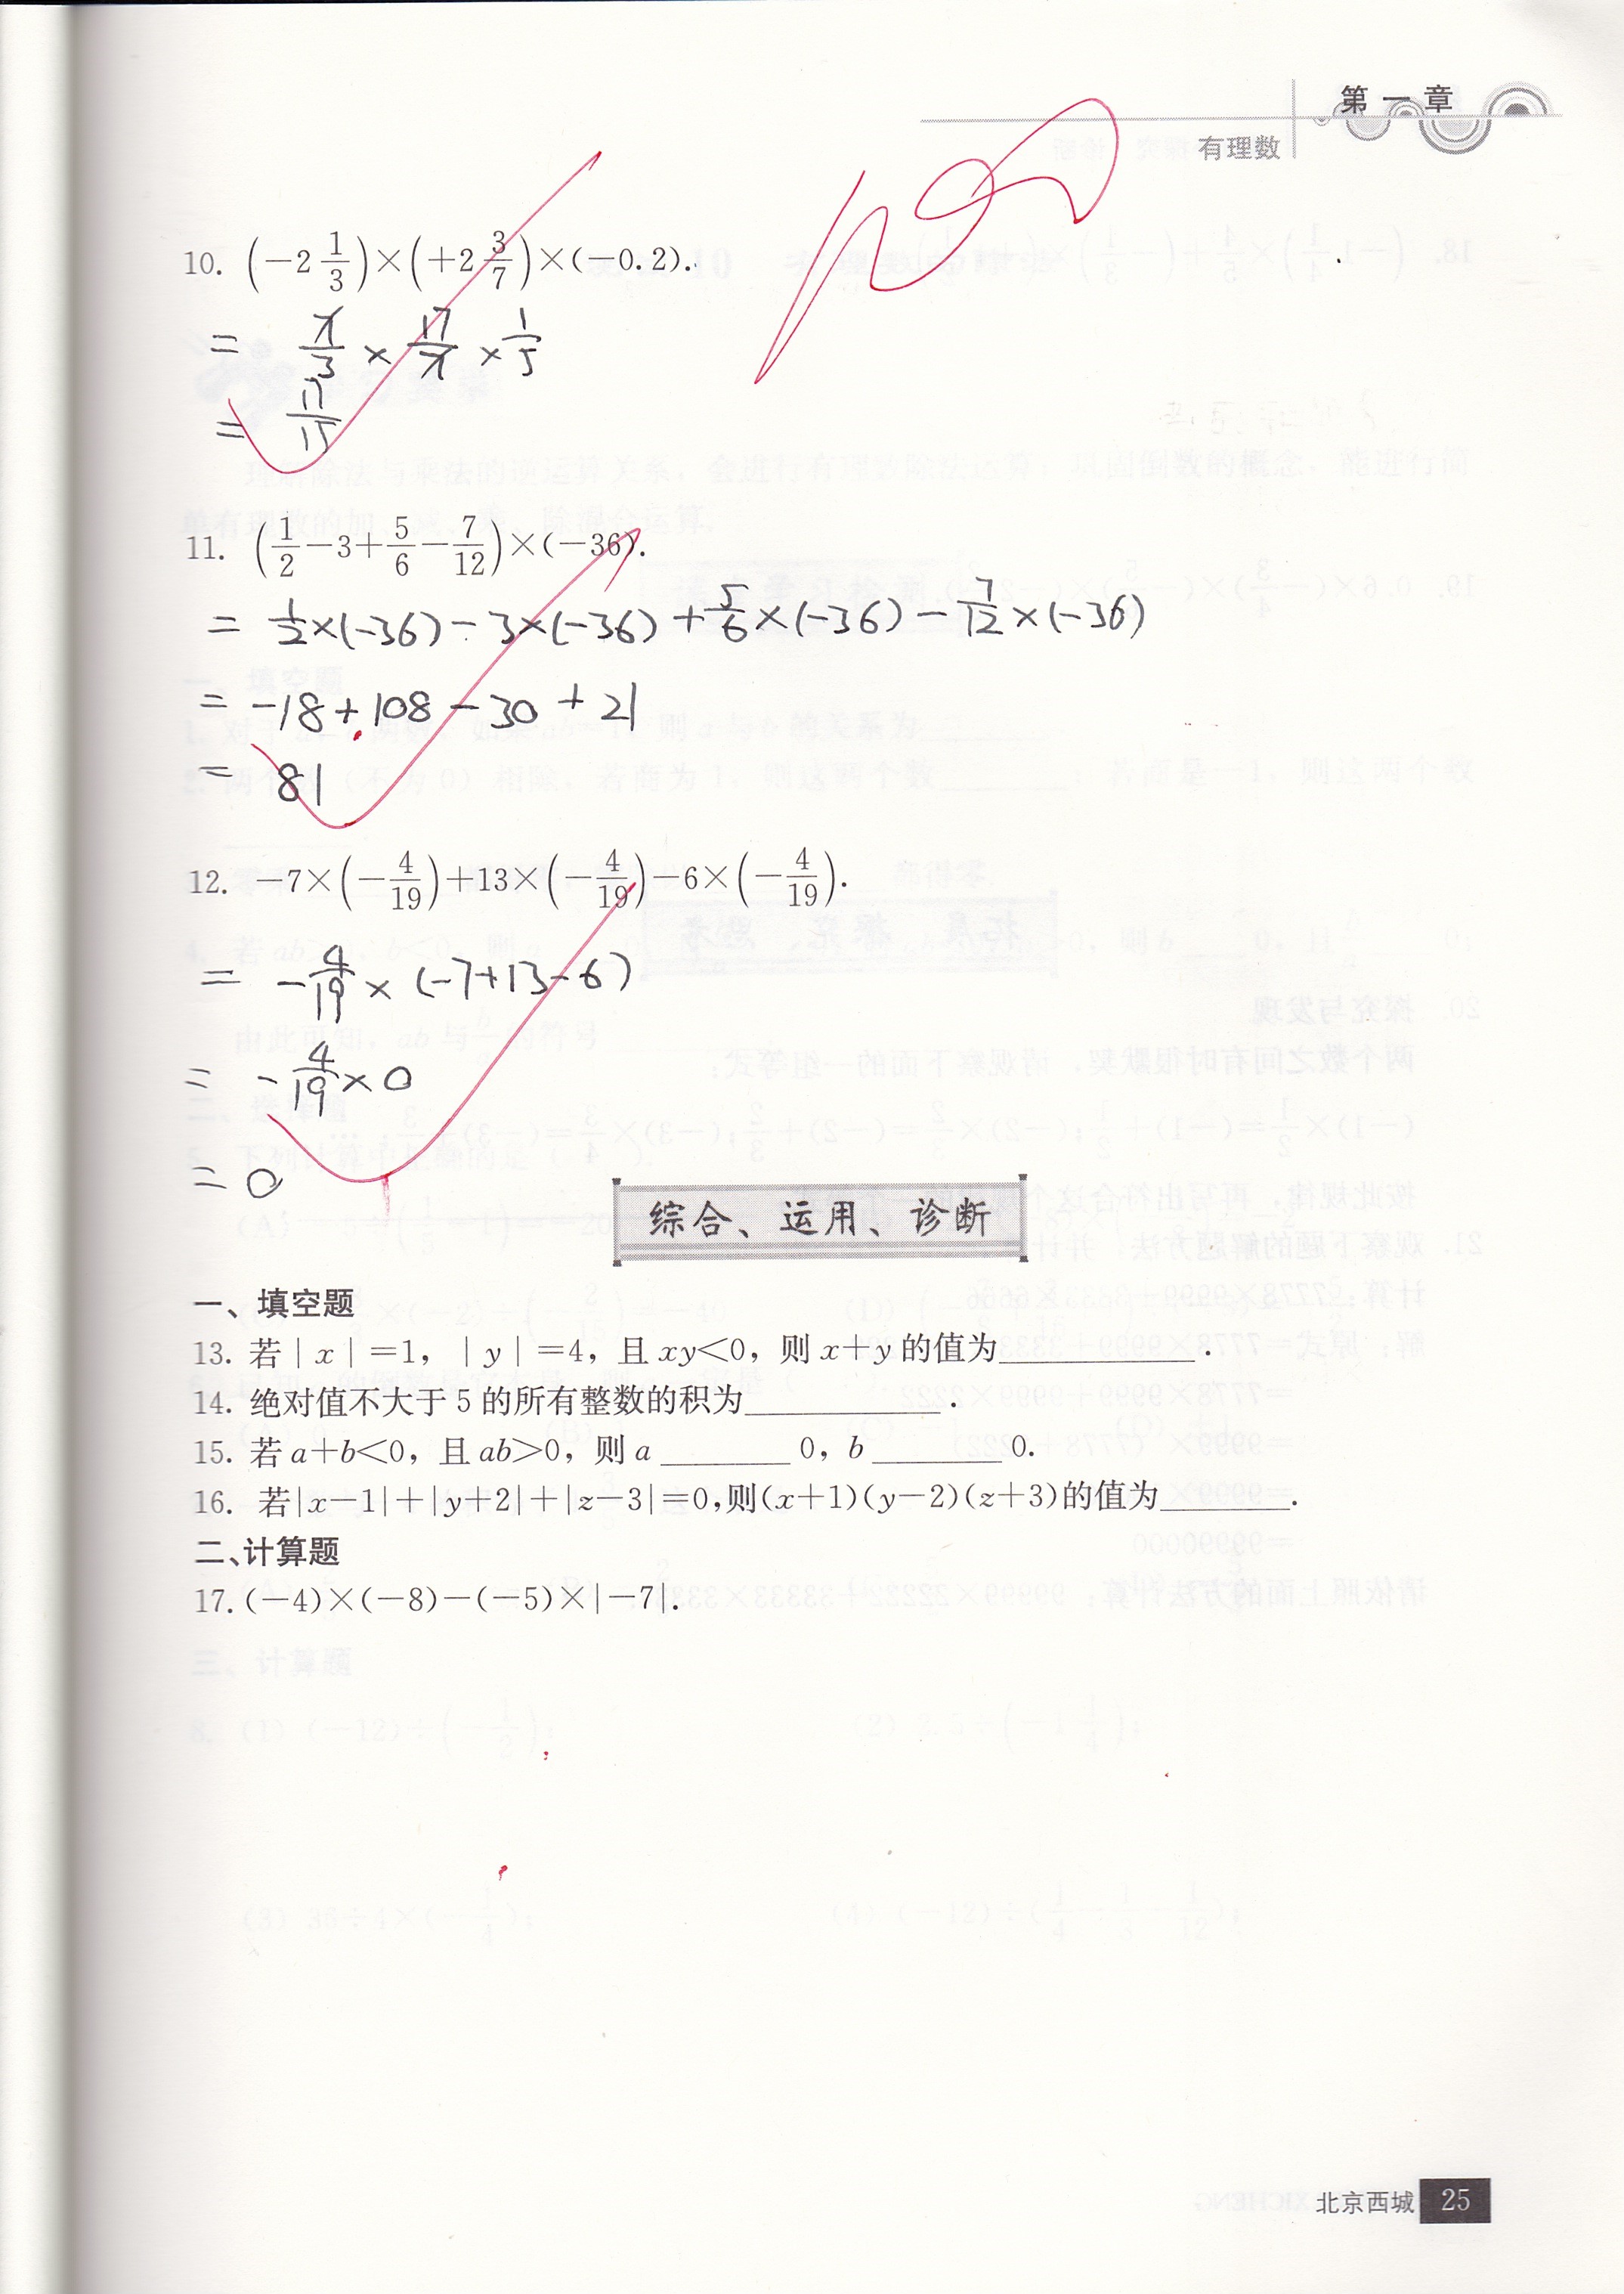 第一章
有理数
10. (−2 1/3)×(+2 3/7)×(−0.2).
= 7/3 × 17/7 × 1/5
= 17/15
11. (1/2−3+5/6−7/12)×(−36).
= 1/2×(−36)−3×(−36)+5/6×(−36)−7/12×(−36)
= −18+108−30+21
= 81
12. −7×(−4/19)+13×(−4/19)−6×(−4/19).
= −4/19×(−7+13−6)
= −4/19×0
= 0
综合、运用、诊断
一、填空题
13. 若|x|=1, |y|=4, 且xy<0, 则x+y的值为____________.
14. 绝对值不大于5的所有整数的积为____________.
15. 若a+b<0, 且ab>0, 则a ________ 0, b ________ 0.
16. 若|x−1|+|y+2|+|z−3|=0,则(x+1)(y−2)(z+3)的值为________.
二、计算题
17. (−4)×(−8)−(−5)×|−7|.
北京西城 25